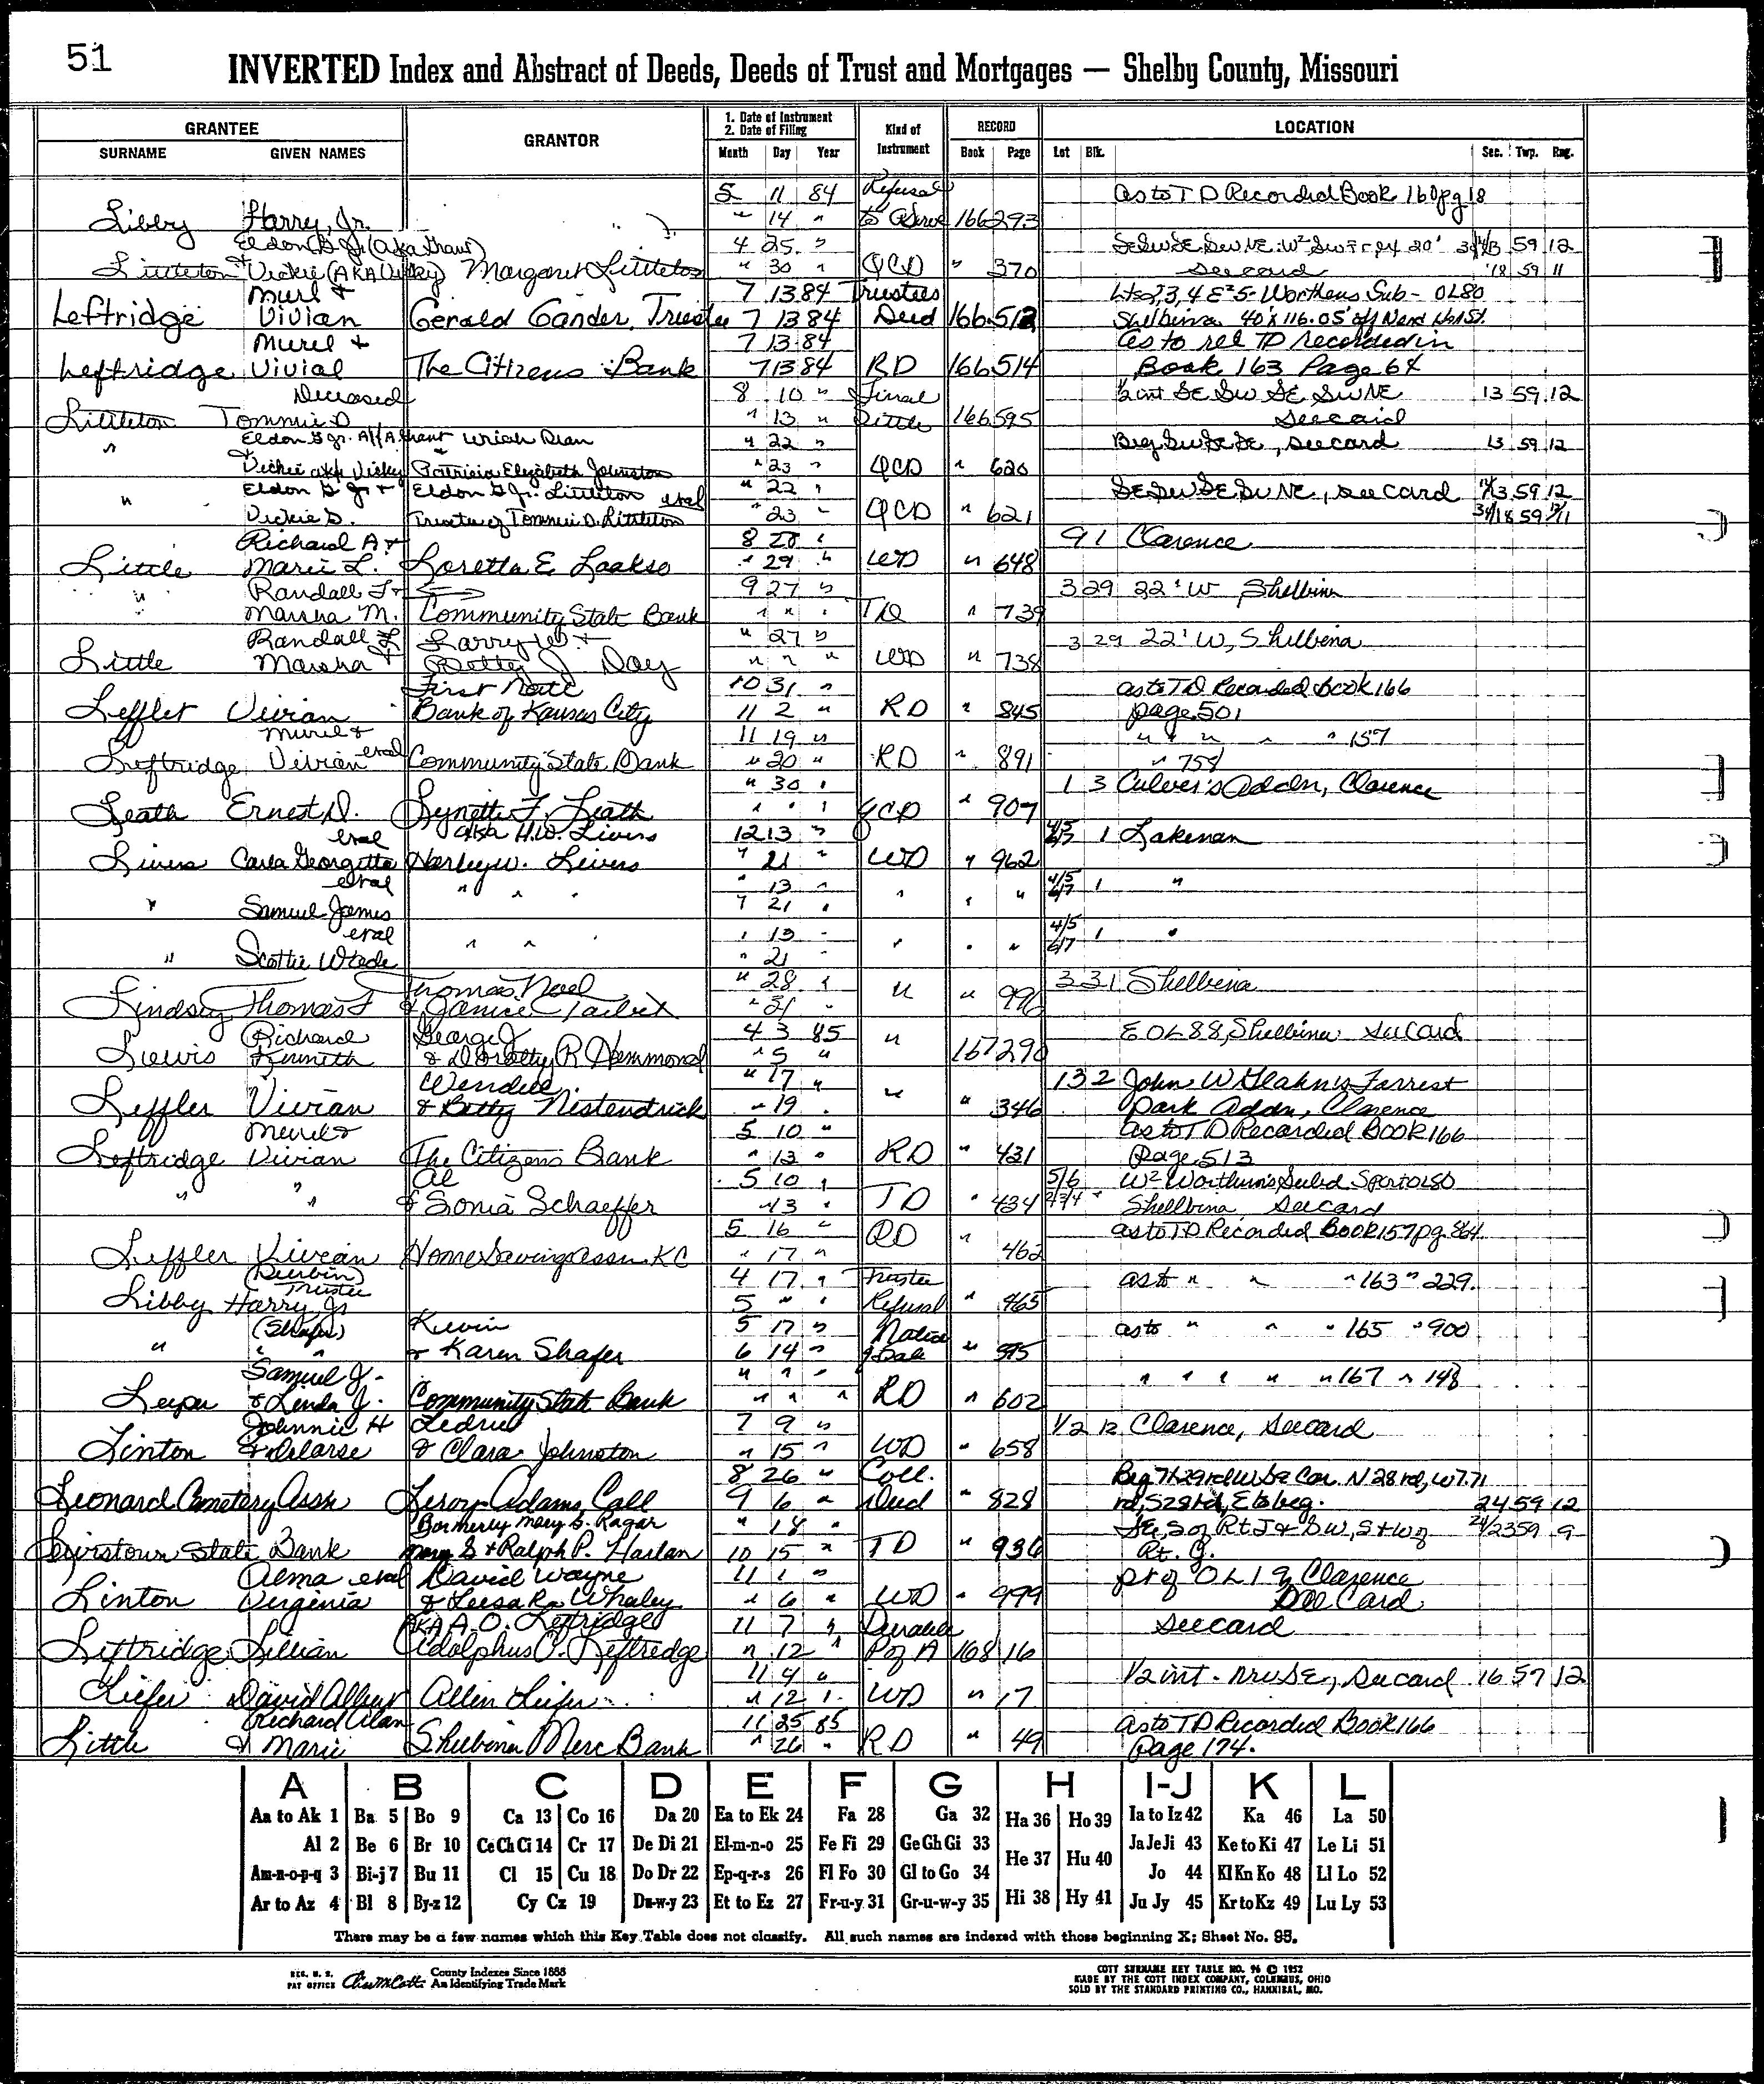 51
INVERTED Index and Abstract of Deeds, Deeds of Trust and Mortgages — Shelby County, Missouri
GRANTEE
GRANTOR
1. Date of Instrument
2. Date of Filing
Kind of Instrument
RECORD
LOCATION
SURNAME GIVEN NAMES Month Day Year Book Page Lot Blk. Sec. Twp. Rng.
5 11 84 Refusal as to T D Recorded Book 160 pg 18
Libby Harry, Jr. " 14 " to Serve 166 293
Eldon G Jr (aka Grant) 4 25 " SESWSE SWNE W² SW Fr 59 12
Littleton & Vickie (AKA Vicky) Margaret Littleton " 30 " QCD " 370 see card 18 59 11
Murl & 7 13 84 Trustees Lts 2,3,4 E² 5 - Worthens Sub - OL80
Leftridge Vivian Gerald Gander, Trustee 7 13 84 Deed 166 512 Shelbina 40' x 116.05' off N end
Murel & 7 13 84 as to rel TD recorded in
Leftridge Vivial The Citizens Bank 7 13 84 RD 166 514 Book 163 Page 64
Deceased 8 10 " Final ½ int SE SW SE SWNE 13 59 12
Littleton Tommie D " 13 " Settle 166 595 see card
" Eldon G Jr. A/K/A Grant Uriah Dean " 22 " Beg SWSESE, see card 13 59 12
& Vickie aka Vicky Patricia Elizabeth Johnston " 23 " QCD " 620
Eldon G Jr & Eldon G Jr. Littleton etal " 22 " SESWSESWNE, see card 13 59 12
" Vickie S. Trustee of Tommie D. Littleton " 23 " QCD " 621 18 59 11
Richard A & 8 28 " 9 1 Clarence
Little Marie L. Loretta E Laakso " 29 " WD " 648
" Randall L & 9 27 " 3 29 22' W Shelbina
Marsha M. Community State Bank " " " TD " 739
Randall L Larry W & " 27 " 3 29 22' W, Shelbina
Little & Marsha Betty J Day " " " WD " 738
First Natl 10 31 " as to TD Recorded Book 166
Leffler Vivian Bank of Kansas City 11 2 " RD " 845 page 501
Murel & 11 19 " " " " " " 157
Leftridge Vivian etal Community State Bank " 20 " RD " 891 " 758
" 30 " 1 3 Culver's Addn, Clarence
Leath Ernest D. Lynette F. Leath " " " QCD " 907
etal aka H.W. Livers 12 13 " 4/5 6/7 1 Lakenan
Livers Carla Georgetta Harley W. Livers " 21 " WD " 962
etal " " " " 13 " " " " 4/5 6/7 1 "
" Samuel James " 21 "
etal " " " " 13 " " " " 4/5 6/7 1 "
" Scottie Wade " 21 "
Thomas Noel " 28 " " " 996 3 31 Shelbina
Lindsey Thomas F & Janice Tarbet " 31 "
Richard George J 4 3 85 " E OL 88, Shelbina see card
Lewis Kenneth & Dorothy R Hammond " 5 " 167 290
Wendell " 17 " " 13 2 John W Glahn's Forrest
Leffler Vivian & Betty Nestendrick " 19 " " 346 Park Addn, Clarence
Merrel & 5 10 " as to TD Recorded Book 166
Leftridge Vivian The Citizens Bank " 13 " RD " 431 Page 513
" " Al 5 10 " 5/6 W² Worthen's Subd. S pt OL80
" & Sonia Schaeffer " 13 " TD " 434 2/3/4 " Shelbina see card
5 16 " RD " as to TD Recorded Book 157 pg. 864
Leffler Vivian Home Savings Assn. KC " 17 " 462
(Durbin) Trustee 4 17 " Trustee as to " " " 163 " 229.
Libby Harry Jr 5 " " Refusal " 465
(Shafer) Kevin 5 17 " Notice as to " " " 165 " 900
" " " & Karen Shafer 6 14 " of Sale " 575
Samuel J - " " " " " " " " 167 " 148
Leeper & Linda J. Community State Bank " " " RD " 602
Johnnie H Ledru 7 9 " 1/2 12 Clarence, see card
Linton & Delorse & Clara Johnston " 15 " WD " 658
8 26 " Coll. Beg 71.29 rd W SE Cor. N 28 rd, W 7.71
Leonard Cemetery Assn Leroy Adams, Coll 9 6 " Deed " 828 rd, S 28 rd, E to beg. 24 59 12
Formerly Mary S. Ragar " 18 " SE, S of Rt J & SW, S + W of 23 59 9
Lewistown State Bank Mary S & Ralph P. Harlan 10 15 " TD " 936 Rt. J.
Alma etal David Wayne 11 1 " pt of OL 1 of Clarence
Linton Virginia & Leesa Ra Whaley " 6 " WD " 999 See Card
AKA A.O. Leftridge 11 7 " Durable see card
Leftridge Lillian Adolphus O. Leftredge " 12 " P of A 168 16
11 4 " 1/2 int - NWSE, see card 16 57 12
Liefer David Albert Allen Leifer " 12 " WD " 17
Richard Alan 11 25 85 as to TD Recorded Book 166
Little & Marie Shelbina Merc Bank " 26 " RD " 49 Page 174.
A B C D E F G H I-J K L
Aa to Ak 1 Ba 5 Bo 9 Ca 13 Co 16 Da 20 Ea to Ek 24 Fa 28 Ga 32 Ha 36 Ho 39 Ia to Iz 42 Ka 46 La 50
Al 2 Be 6 Br 10 Ce Ch Ci 14 Cr 17 De Di 21 El-m-n-o 25 Fe Fi 29 Ge Gh Gi 33 He 37 Hu 40 Ja Je Ji 43 Ke to Ki 47 Le Li 51
Am-n-o-p-q 3 Bi-j 7 Bu 11 Cl 15 Cu 18 Do Dr 22 Ep-q-r-s 26 Fl Fo 30 Gl to Go 34 Jo 44 Kl Kn Ko 48 Ll Lo 52
Ar to Az 4 Bl 8 By-z 12 Cy Cz 19 Du-w-y 23 Et to Ez 27 Fr-u-y 31 Gr-u-w-y 35 Hi 38 Hy 41 Ju Jy 45 Kr to Kz 49 Lu Ly 53
There may be a few names which this Key Table does not classify. All such names are indexed with those beginning X; Sheet No. 95.
REG. U. S. PAT OFFICE County Indexes Since 1888 An Identifying Trade Mark
COTT SURNAME KEY TABLE NO. 96 © 1952
MADE BY THE COTT INDEX COMPANY, COLUMBUS, OHIO
SOLD BY THE STANDARD PRINTING CO., HANNIBAL, MO.